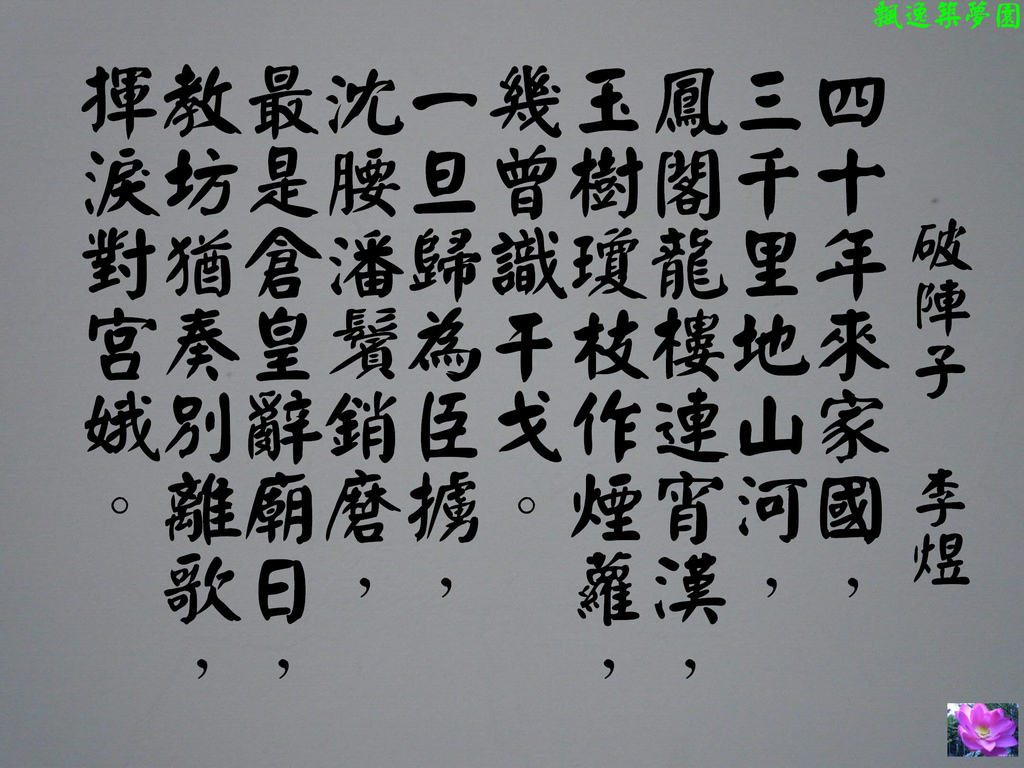 飄逸築夢園
破陣子 李煜
四十年來家國，
三千里地山河，
鳳閣龍樓連宵漢，
玉樹瓊枝作煙蘿，
幾曾識干戈。
一旦歸為臣擄，
沈腰潘鬢銷磨，
最是倉皇辭廟日，
教坊猶奏別離歌，
揮淚對宮娥。